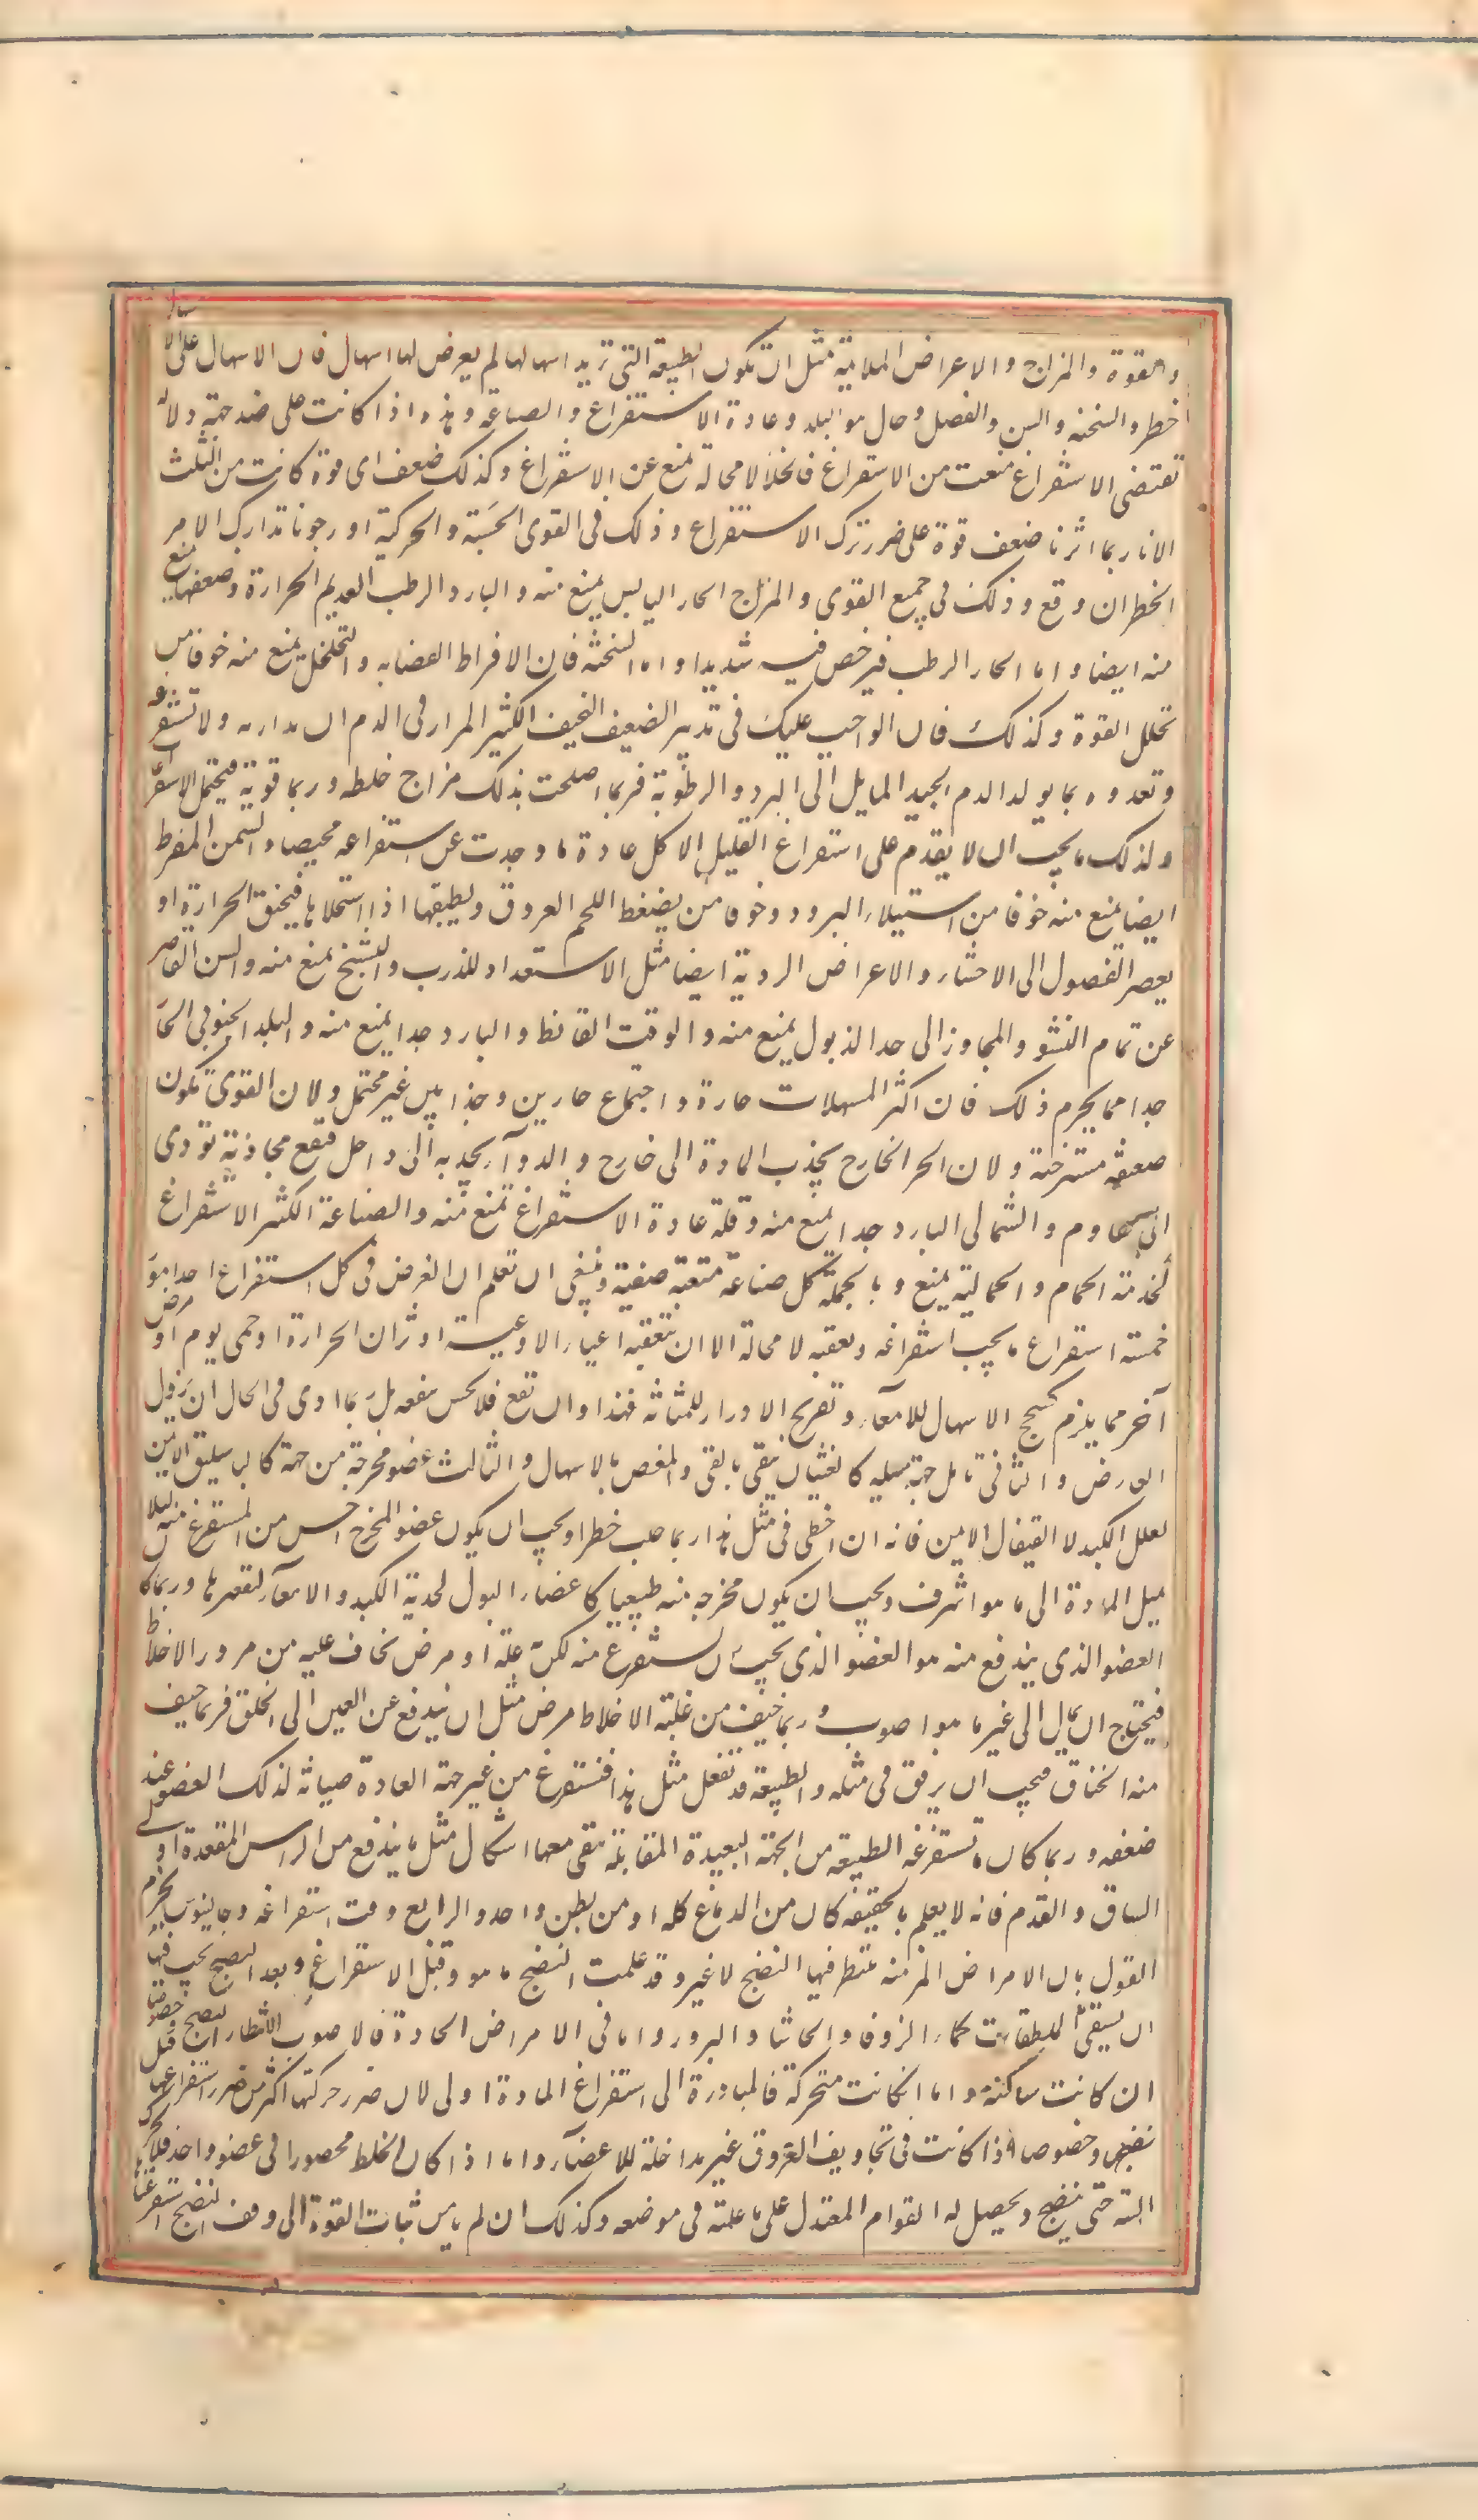 والقوة والمزاج والاعراض الملايمة مثل ان تكون الطبيعة التى تريد اسهالها لم يعرض لها اسهال فان الاسهال على الاسهال
خطر والسخنه والسن والفصل وحال هوا البلد وعادة الاستفراغ والصناعة وهذه اذا كانت على ضد جهة دلالة
تقتضى الاستفراغ منعت من الاستفراغ فالخلا لا محالة يمنع عن الاستفراغ وكذلك ضعف اى قوة كانت من الثلث
الا انا ربما اثرنا ضعف قوة على ضرر ترك الاستفراغ وذلك فى القوى الحسية والحركية او رجونا تدارك الامر
الخطر ان وقع وذلك فى جميع القوى والمزاج الحار اليابس يمنع منه والبارد الرطب العديم الحرارة وضعفها يمنع
منه ايضا واما الحار الرطب فيرخص فيه شديدا واما السخنة فان الافراط القضافه والتخلخل يمنع منه خوفا من
تحلل القوة وكذلك فان الواجب عليك فى تدبير الضعيف النحيف الكثير المرار فى الدم ان تداريه ولا تستفرغه
وتغدوه بما يولد الدم الجيد المايل الى البرد والرطوبة فربما اصلحت بذلك مزاج خلطه وربما قويته فيحتمل الاستفراغ
ولذلك ما يجب ان لا يقدم على استفراغ القليل الاكل عادة ما وجدت عن استفراغه محيصا والسمن المفرط
ايضا يمنع منه خوفا من استيلاء البرد وخوفا من يضغط اللحم العروق ويطبقها اذا استخلاها فيخنق الحرارة او
يعصر الفصول الى الاحشاء والاعراض الردية ايضا مثل الاستعداد للذرب والتشنج يمنع منه والسن القاصر
عن تمام النشو والمجاوز الى حد الذبول يمنع منه والوقت القائظ والبارد جدا يمنع منه والبلد الجنوبى الحار
جدا مما يحرم ذلك فان اكثر المسهلات حارة واجتماع حارين وحذا بين غير محتمل ولان القوى تكون
ضعيفه مسترخية ولان الحر الخارج يجذب المادة الى خارج والدوآء يجذبه الى داخل فيقع مجاذبة تؤدى
الى تقاوم والشمالى البارد جدا يمنع منه وقلة عادة الاستفراغ تمنع منه والصناعة الكثير الاستفراغ
كخدمة الحمام والحمالية يمنع وبالجملة كل صناعة متعبة صعبة وينبغى ان تعلم ان الغرض فى كل استفراغ احد امور
خمسة استفراغ ما يجب استفراغه وتعقبه لا محالة الا ان تتعقبه اعياء الاوعية او ثوران الحرارة او حمى يوم او مرض
آخر مما يلزم كسحج الاسهال للامعآء وتقريح الادرار للمثانة فهذا وان نفع فلا يحس بنفعه بل ربما ادى فى الحال ان يزول
العارض والثانى تامل جهة ميله كالغثيان ينقى بالقى والمغص بالاسهال والثالث عضو مخرجه من جهة كالباسليق الايمن
لعلل الكبد لا القيفال الايمن فانه ان اخطى فى مثل هذا ربما جلب خطرا ويجب ان يكون عضو المخرج اخس من المستفرغ منه ليلا
يميل المادة الى ما هو اشرف ويجب ان يكون مخرجه منه طبيعيا كاعضاء البول لحدبة الكبد والامعآء لتقعيرها وربما كان
العضو الذى يندفع منه هو العضو الذى يجب ان يستفرغ منه لكن به علة او مرض يخاف عليه من مرور الاخلاط
فيحتاج ان يمال الى غيره ما هو اصوب وربما خيف من غلبة الاخلاط مرض مثل ان يندفع عن العين الى الحلق فربما خيف
منه الخناق فيجب ان يرفق فى مثله والطبيعة قد تفعل مثل هذا فتستفرغ من غير جهة العادة صيانة لذلك العضو عند
ضعفه وربما كان ما تستفرغه الطبيعة من الجهة البعيدة المقابلة يبقى معها اشكال مثل ما يندفع من الراس المقعدة او الى
الساق والقدم فانه لا يعلم بالحقيقه كان من الدماغ كله او من بطن واحد والرابع وقت استفراغه وجالينوس يجزم
القول بان الامراض المزمنه ينتظر فيها النضج لا غير وقد علمت النضج ما هو وقبل الاستفراغ وبعد النضج يجب فيها
ان يسقى الملطفات كماء الزوفا والحاشا والبزور واما فى الامراض الحادة فالاصوب الانتظار النضج خصوصا
ان كانت ساكنة واما ان كانت متحركة فالمبادرة الى استفراغ المادة اولى لان ضرر حركتها اكثر من ضرر استفراغها قبل
نضجها وخصوصا اذا كانت فى تجاويف العروق غير مداخلة للاعضآء واما اذا كان الخلط محصورا فى عضو واحد فلا يحرك
البتة حتى ينضج ويحصل له القوام المعتدل على ما علمته فى موضعه وكذلك ان لم يامن ثبات القوة الى وقف النضج استفرغنا